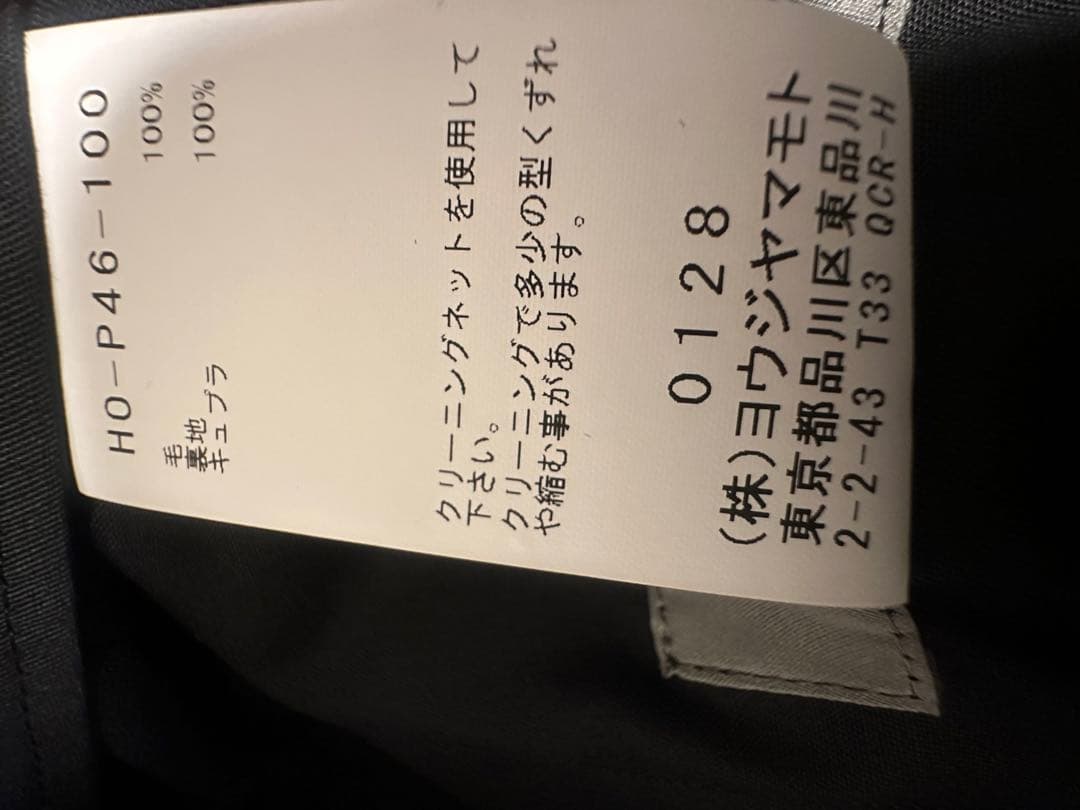 HO-P46-100
毛 100%
裏地
キュプラ 100%
クリーニングネットを使用して
下さい。
クリーニングで多少の型くずれ
や縮む事があります。
0128
(株)ヨウジヤマモト
東京都品川区東品川
2-2-43 T33 QCR-H